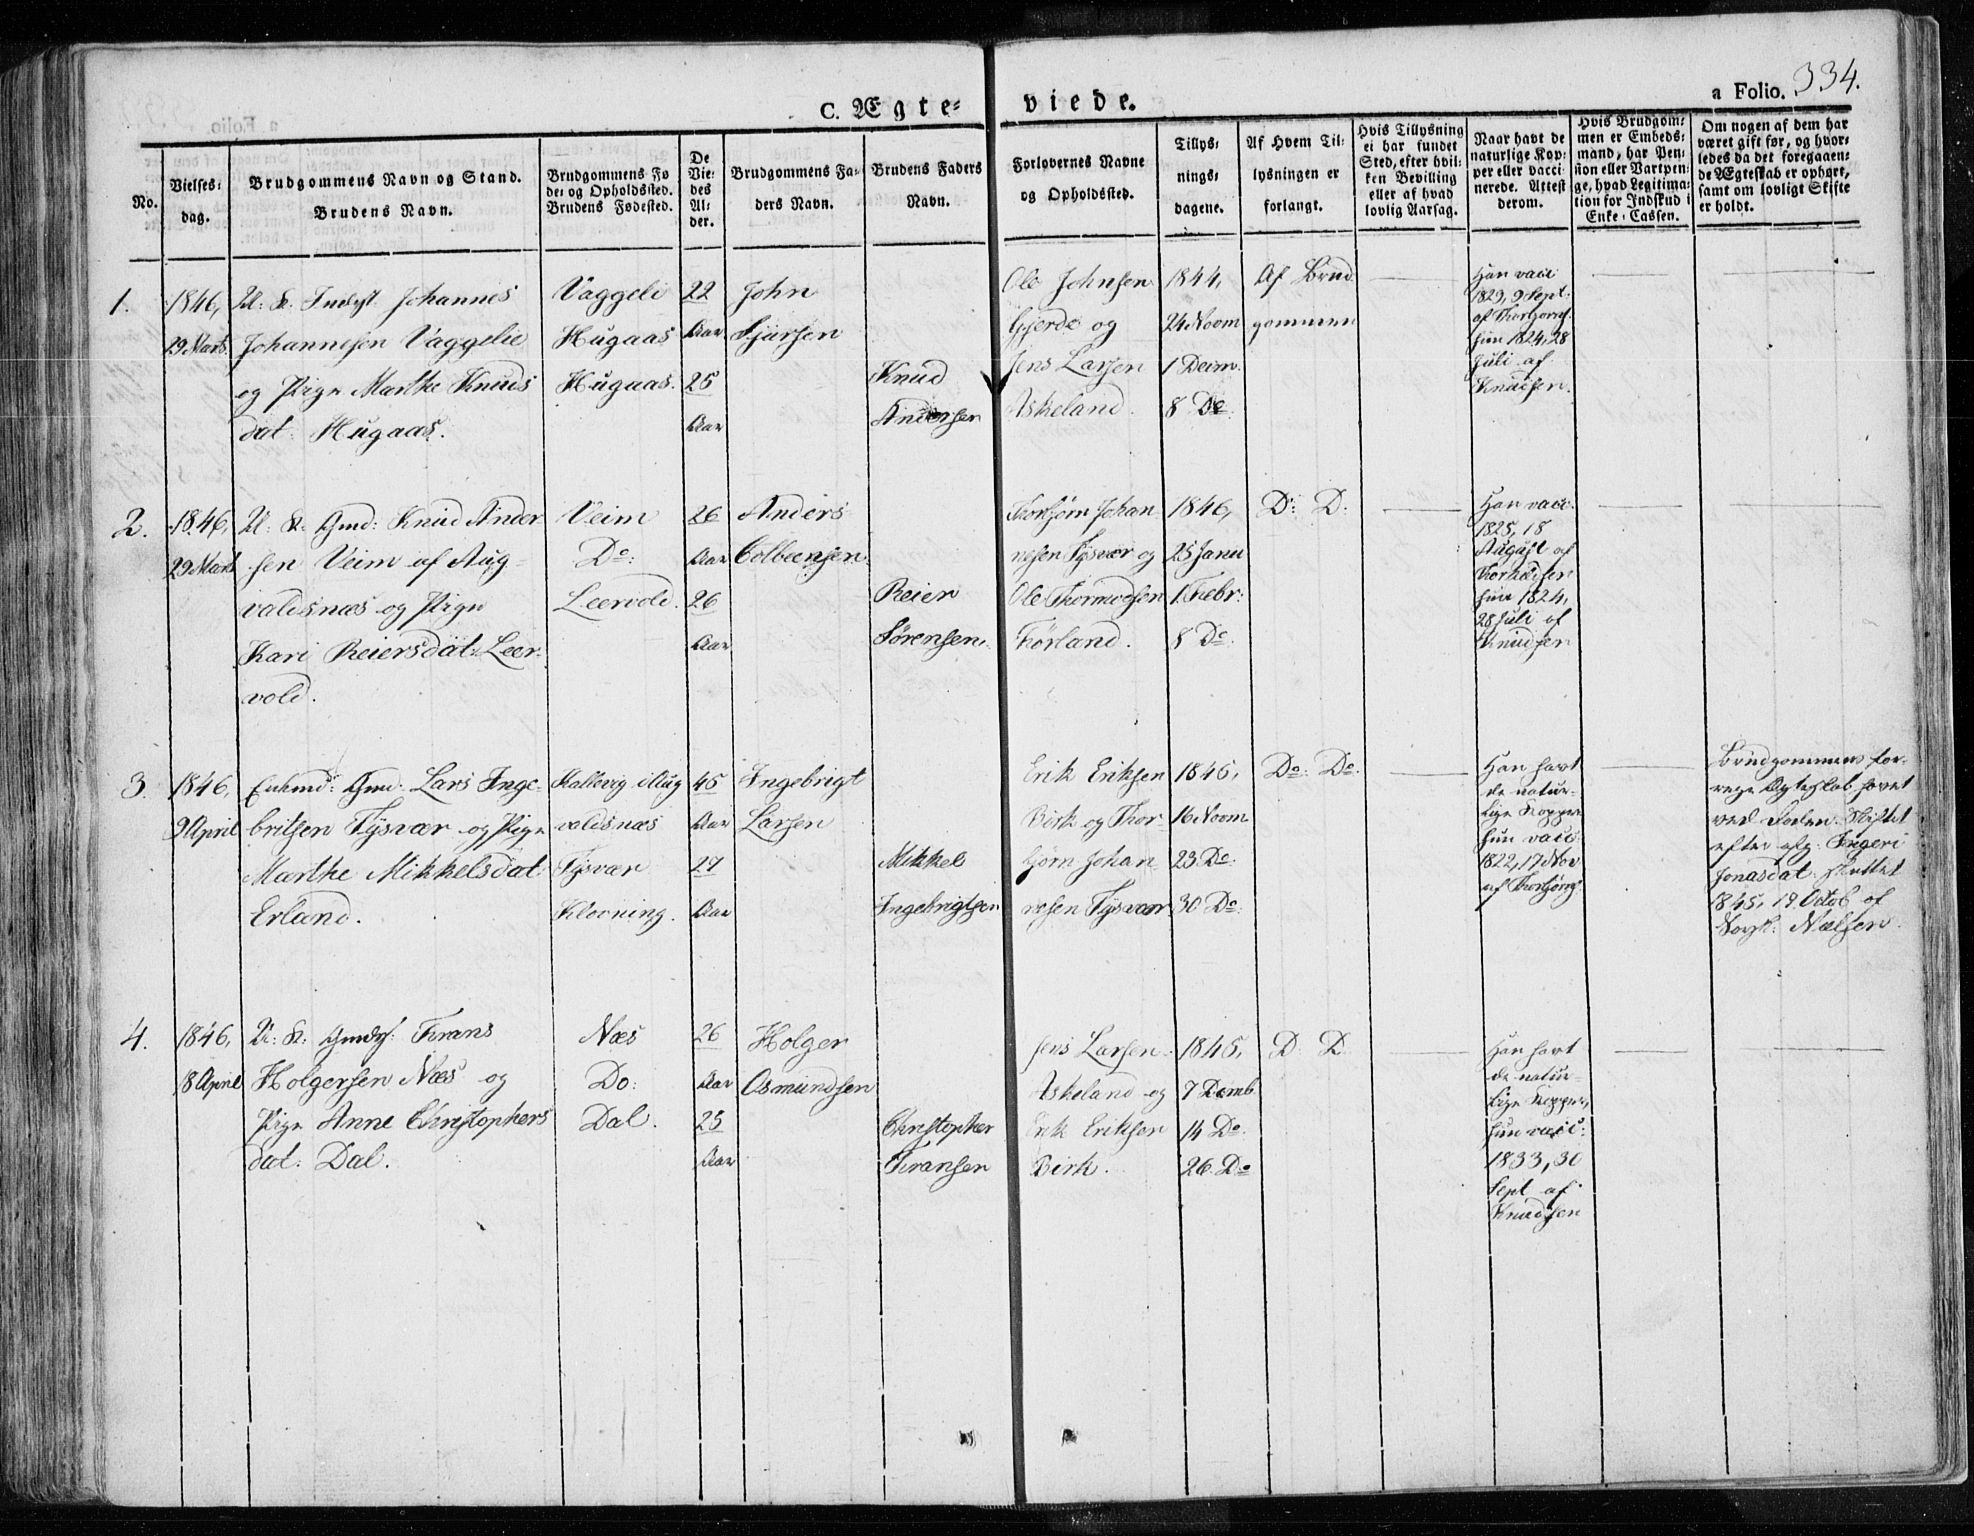 C. Ægte= viede.
a Folio. 334.
No.
Vielses=
dag.
Brudgommens Navn og Stand.
Brudens Navn.
Brudgommens Fø
de= og Opholdssted.
Brudens Fødested.
De
Vie=
des
Al=
der.
Brudgommens Fa=
ders Navn.
Brudens Faders
Navn.
Forlovernes Navne
og Opholdssted.
Tillys=
nings=
dagene.
Af Hvem Til=
lysningen er
forlangt.
Hvis Tillysning
ei har fundet
Sted, efter hvil=
ken Bevilling
eller af hvad
lovlig Aarsag.
Naar havt de
naturlige Kop=
per eller vacci=
nerede. Attest
derom.
Hvis Brudgom=
men er Embeds=
mand, har Pen=
sion eller Vartpen=
ge, hvad Legitima=
tion for Indskud i
Enke=Cassen.
Om nogen af dem har
været gift før, og hvor=
ledes da det foregaaen=
de Ægteskab er ophørt,
samt om lovligt Skifte
er holdt.
1.
1846,
29 Marts
U: K: Indst Johannes
Johannesen Vaggelie
og Pige Marthe Knuds
dat: Hugaas.
Vaggeli
Hugaas
Hugaas.
22
Aar
25
Aar
John
Sjursen
Knud
Andersen
Ole Johnsen
Gjerde og
Jens Larsen
Askeland.
1844,
24 Novm
1 Decm.
8 Do.
Af Brud
gommen
Han vacc
1829, 9 Sept.
af Thorbjørns.
hun 1824, 28
Juli af
Knudsen.
2.
1846,
29 Marts
U: K: Gmd: Knud Ander
sen Veim af Aug=
valdsnæs og Pige
Kari Reiersdat: Leer=
vold.
Veim
Do:
Leervold.
26
Aar
26
Aar
Anders
Colbeensen.
Reier
Sørensen.
Thorbjørn Johan
nesen Tysvær og
Ole Thormodsen
Førland.
1846,
25 Janu
1. Febr:
8 Do.
D: D:
Han vacc.
1825, 18
August af
Thorkildsen
hun 1824,
28 Juli af
Knudsen
3.
1846,
9 April
Enkmd: Gmd: Lars Inge=
britsen Tysvær og Pige
Marthe Mikkelsdat:
Erland.
Kallevig i Aug
valdsnæs
Tysvær
Klovning.
45
Aar
27
Aar
Ingebrigt
Larsen
Mikkel
Ingebrigtsen
Erik Eriksen
Birk og Thor=
bjørn Johan
nesen Tysvær
1845,
16 Novm
23 Do:
30 Do:
Do: Do:
Han havt
de natur=
lige Kopper
hun vacc
1822, 17 Nov
af Thorbjørns.
Brudgommens for=
rige Ægteskab hævet
ved Døden. Skiftet
efter afg: Ingeri
Jonasdat: sluttet
1845, 19 Octob af
Sorsk: Nælsen.
4.
1846,
18 April
U: K: Gmds: Frans
Holgersen Næs og
Pige Anne Christophers
dat: Dal.
Næs
Do:
Dal.
26
Aar
25
Aar
Holger
Osmundsen
Christopher
Fransen
Jens Larsen
Askeland og
Erik Eriksen
Birk.
1845,
7 Decmb
14 Do.
26. Do
D: D
Han havt
de natur=
lige Kopper,
hun vacc:
1833, 30
Sept af
Knudsen